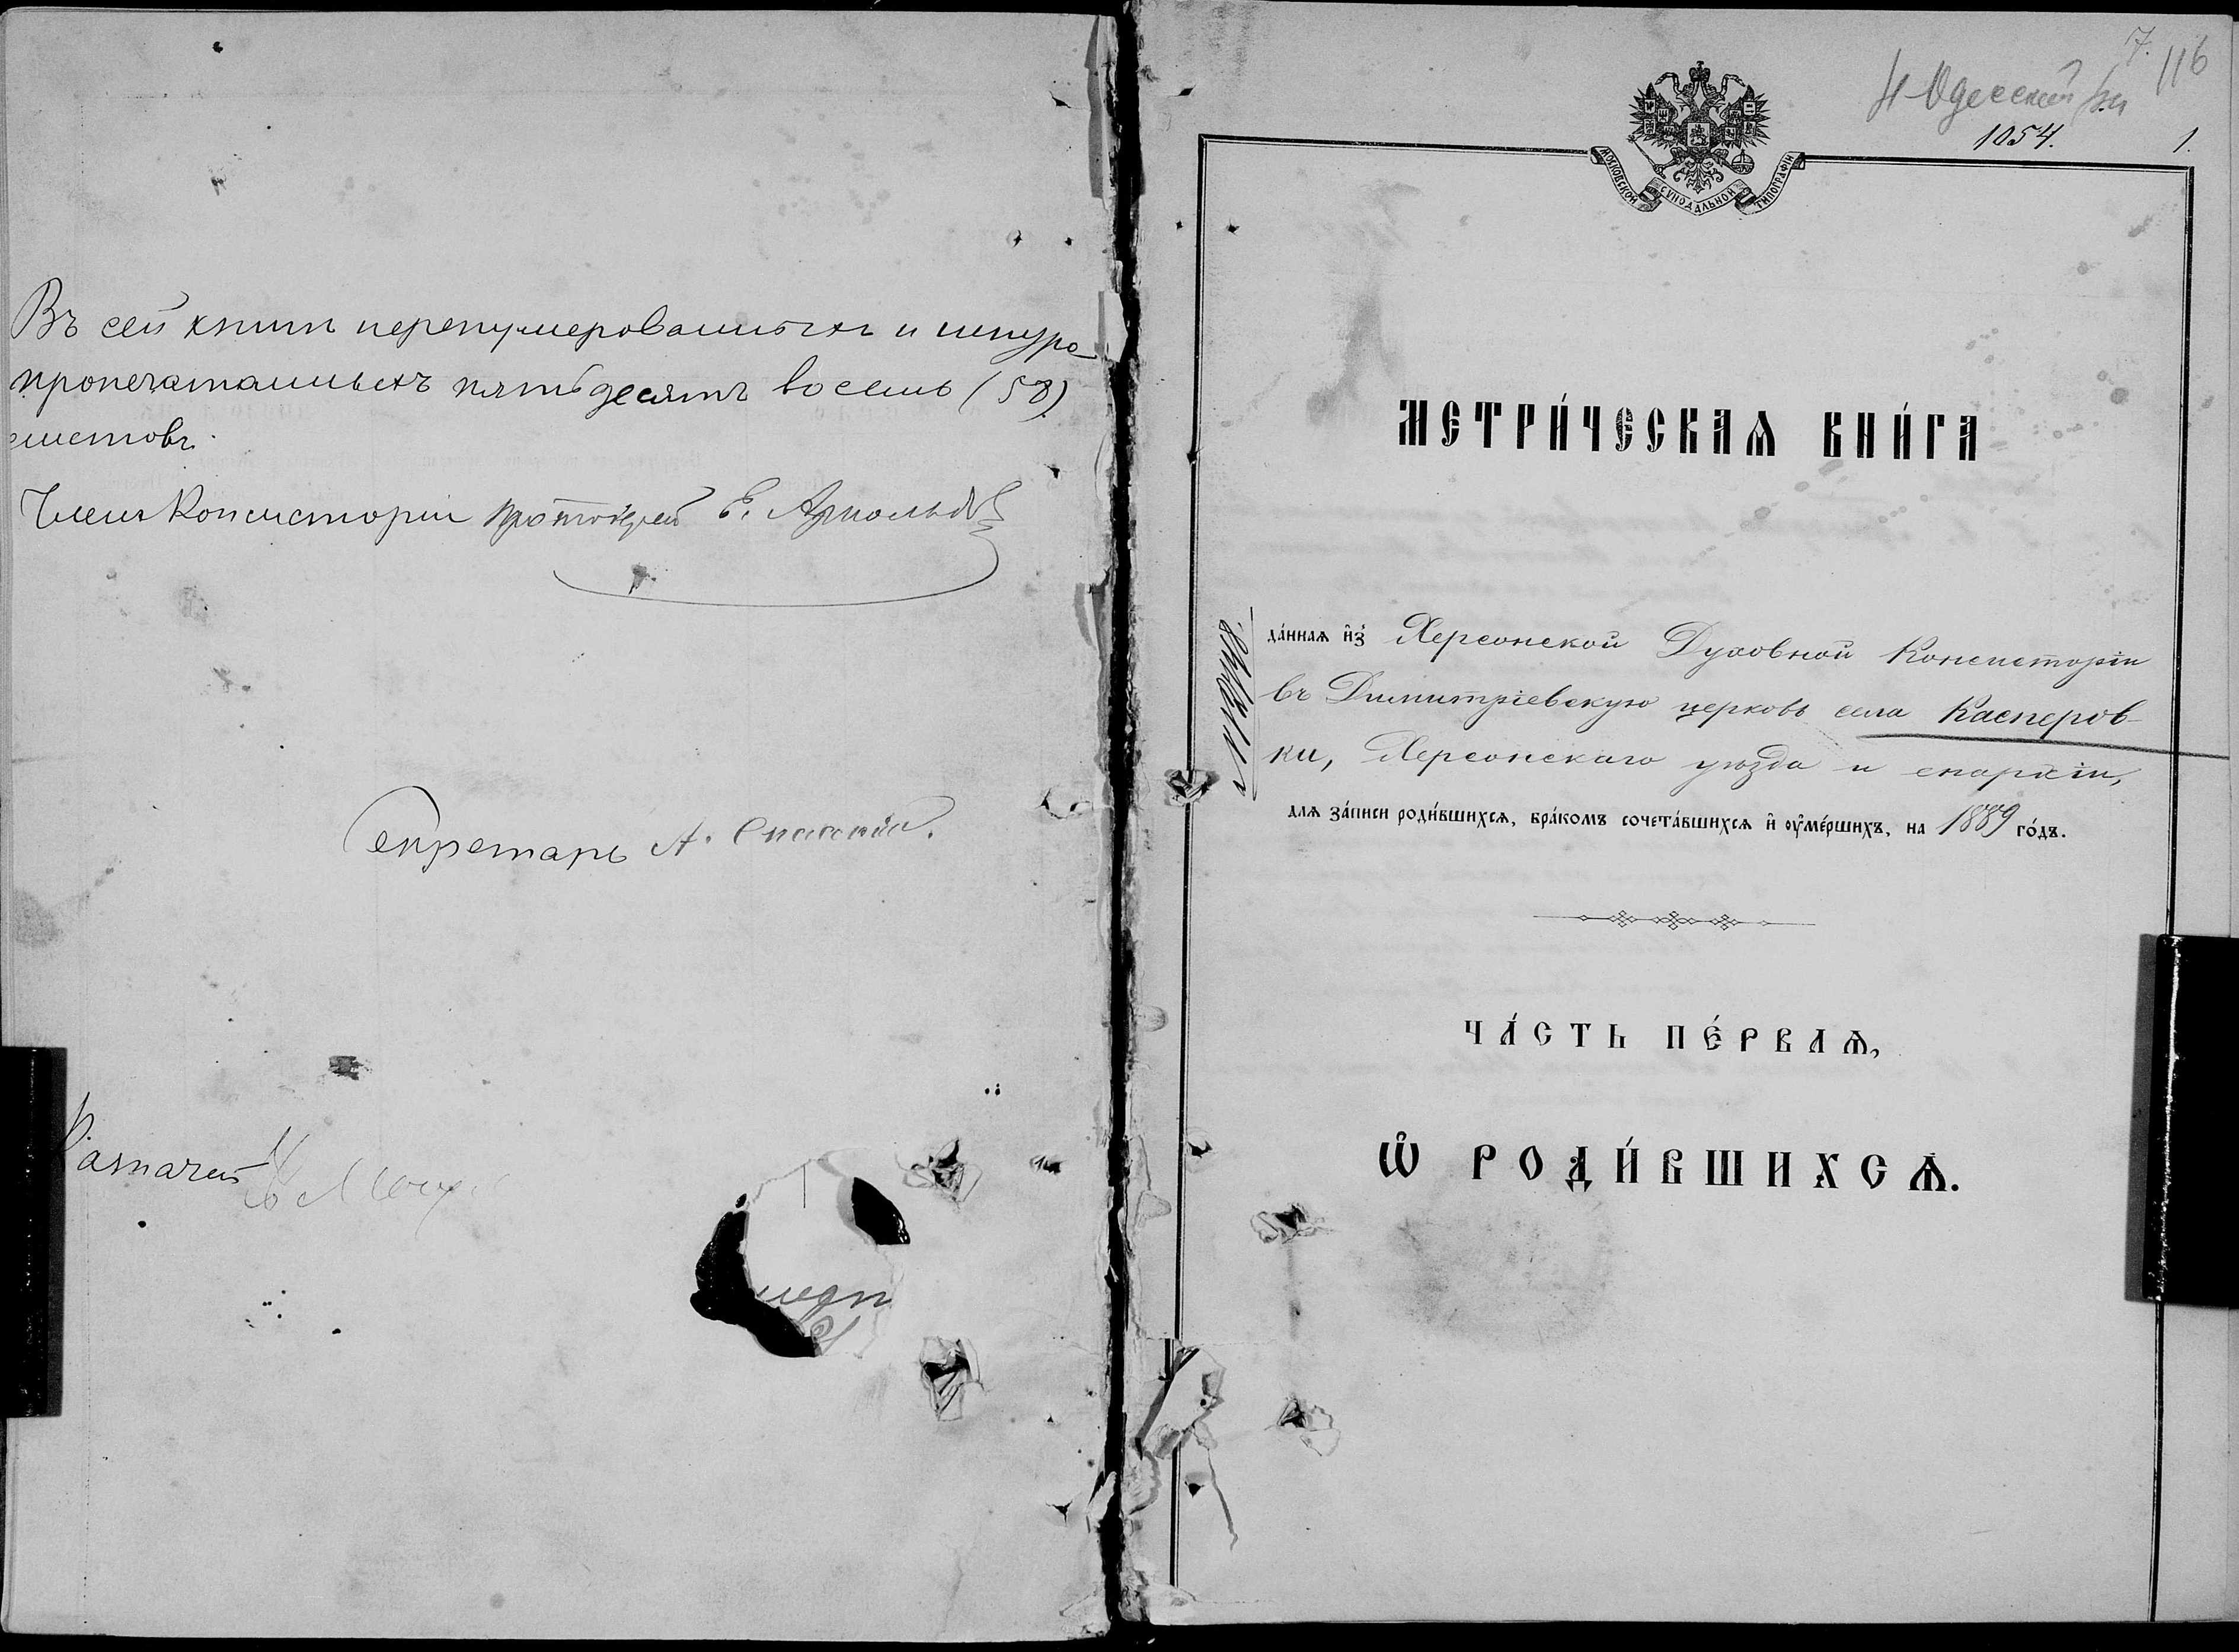 Въ сей книгѣ перенумерованныхъ и шнуро
пропечатанныхъ пятьдесятъ восемь (58)
листовъ.
Членъ Консисторіи протоіерей Е. Арнольдовъ
Секретарь А. Спасскій.
Казначей
7.
116
Н-Одесский
1054.
1.
МОСКОВСКОЙ СѴНОДАЛЬНОЙ ТИПОГРАФІИ
МЕТРИ́ЧЕСКАѦ КНИ́ГА
да́ннаѧ и҆з̾ Херсонской Духовной Консисторіи
въ Димитріевскую церковь села Касперов-
ки, Херсонскаго уѣзда и епархіи,
для за́писи роди́вшихсѧ, бра́комъ сочета́вшихсѧ и҆ ᲂу҆ме́ршихъ, на 1889 го́дъ.
ЧА́СТЬ ПЕ́РВАѦ,
Ѡ҆ РОДИ́ВШИХСѦ.